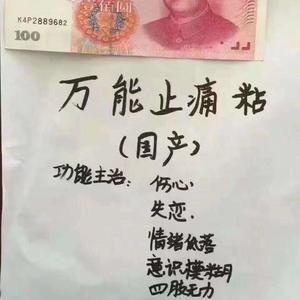 壹佰圆
K4P2889682
100
万能止痛粘
(国产)
功能主治: 伤心
失恋.
情绪低落
意识模粘月
四股无力